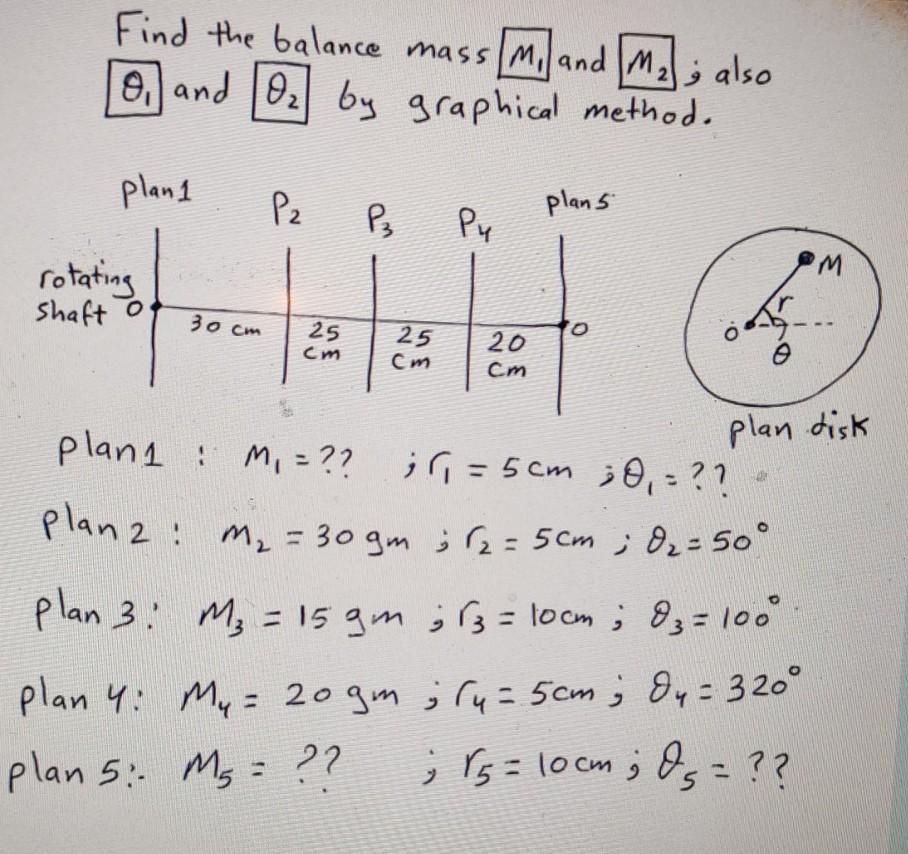 Find the balance mass M₁ and M₂; also
θ₁ and θ₂ by graphical method.
plan1 P₂ P₃ P₄ plan 5
rotating
shaft O
30 cm
25
cm
25
cm
20
cm
O
M
r
O
θ
plan disk
plan1 : M₁ = ?? ; r₁ = 5cm ; θ₁ = ??
plan 2 : M₂ = 30 gm ; r₂ = 5cm ; θ₂ = 50°
plan 3: M₃ = 15 gm ; r₃ = 10cm ; θ₃ = 100°
plan 4: M₄ = 20 gm ; r₄ = 5cm ; θ₄ = 320°
plan 5:- M₅ = ?? ; r₅ = 10cm ; θ₅ = ??